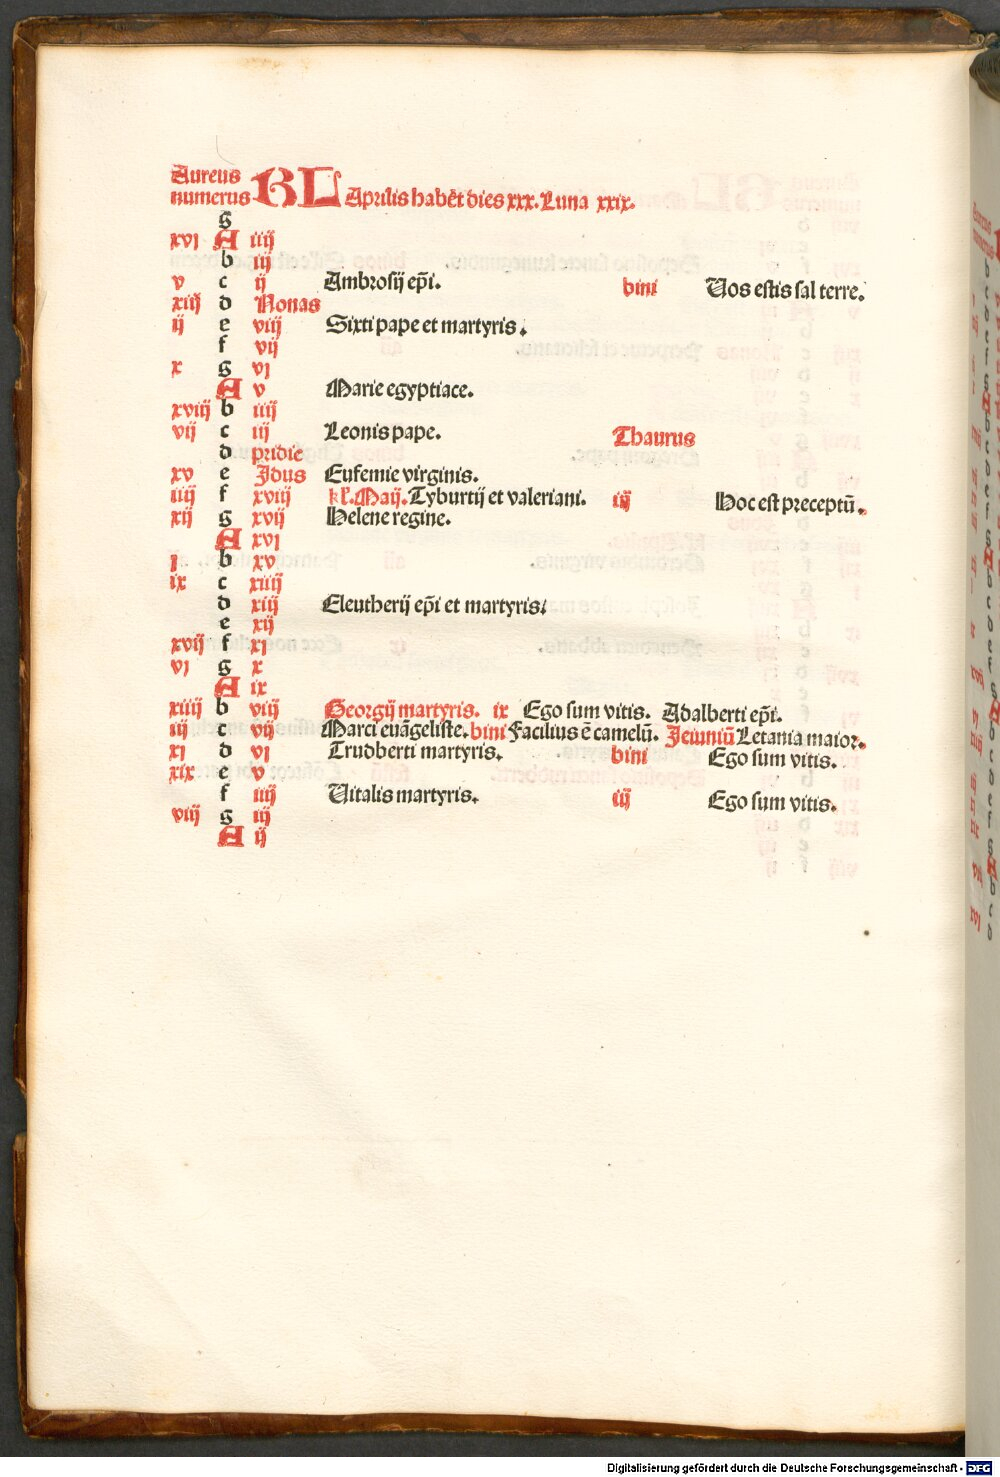 Aureus
numerus KL Aprilis habēt dies xxx. Luna xxix.
g
xvj A iiij
b iij
v c ij Ambrosij ep̄i. bini Uos estis sal terre.
xiij d Nonas
ij e viij Sixti pape et martyris.
f vij
x g vj
A v Marie egyptiace.
xviij b iiij
vij c iij Leonis pape. Thaurus
d pridie
xv e Idus Eufemie virginis.
iiij f xviij kl̄. Maij. Tyburtij et valeriani. iij Hoc est preceptū.
xij g xvij Helene regine.
A xvj
j b xv
ix c xiiij
d xiij Eleutherij ep̄i et martyris.
e xij
xvij f xj
vj g x
A ix
xiiij b viij Georgij martyris. ix Ego sum vitis. Adalberti ep̄i.
iij c vij Marci euāgeliste. bini Facilius ē camelū. Jeiuniū Letania maior.
xj d vj Trudberti martyris. bini Ego sum vitis.
xix e v
f iiij Uitalis martyris. iij Ego sum vitis.
viij g iij
A ij
Digitalisierung gefördert durch die Deutsche Forschungsgemeinschaft - DFG